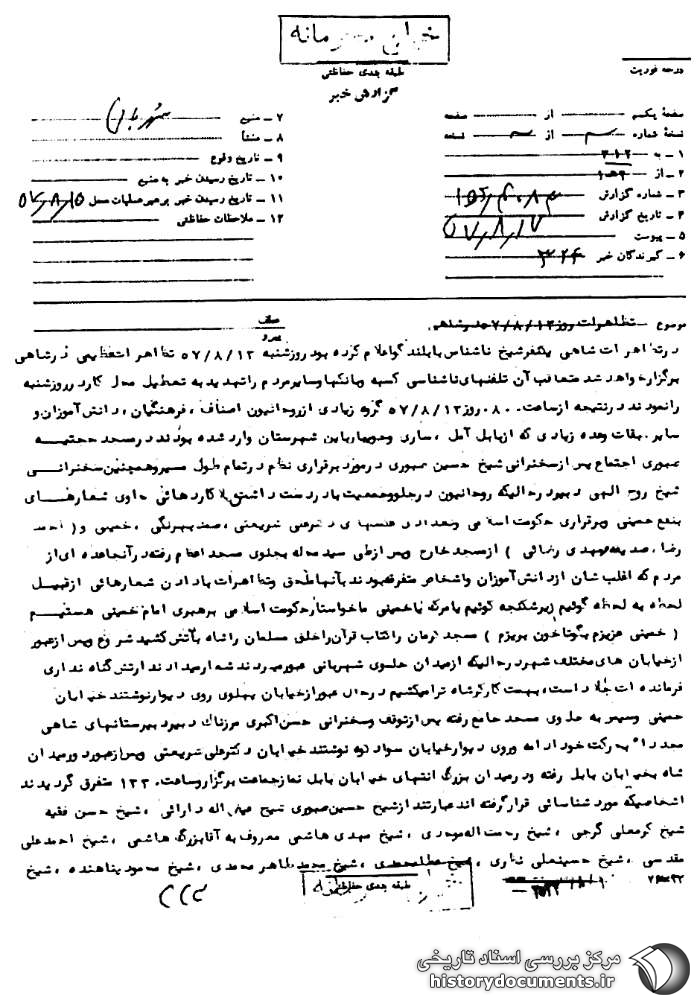 خیلی محرمانه
طبقه بندی حفاظتی
گزارش خبر
درجه فوریت
صفحه یکم از صفحه
نسخه شماره از نسخه
۱ ـ به ۳۱۲
۲ ـ از
۳ ـ شماره گزارش
۴ ـ تاریخ گزارش ۵۷/۸/۱۷
۵ ـ پیوست
۶ ـ گیرندگان خبر
۷ ـ منبع
۸ ـ منشأ
۹ ـ تاریخ وقوع
۱۰ ـ تاریخ رسیدن خبر به منبع
۱۱ ـ تاریخ رسیدن خبر به رهبر عملیات محل ۵۷/۸/۱۵
۱۲ ـ ملاحظات حفاظتی
موضوع ـ تظاهرات روز ۵۷/۸/۱۳ در شاهی
در تظاهرات شاهی یکنفر شیخ ناشناس با بلندگو اعلام کرده بود روز شنبه ۵۷/۸/۱۳ تظاهرات عظیمی در شاهی
برگزار خواهد شد متعاقب آن تلفنهای ناشناسی کسبه و بانکها و سایر مردم را تهدید به تعطیل محل کار در روز شنبه
را نمودند در نتیجه از ساعت ۰۸۰۰ روز ۵۷/۸/۱۳ گروه زیادی از روحانیون اصناف ، فرهنگیان ، دانش آموزان و
سایر طبقات وعده زیادی که از بابل آمل ، ساری و جویبار باین شهرستان وارد شده بودند در مسجد حجتیه
صبوری اجتماع پس از سخنرانی شیخ حسین صبوری در مورد برقراری نظم در تمام طول مسیر و همچنین سخنرانی
شیخ روح الهی دبیر در حالیکه روحانیون در جلو و جمعیت با در دست داشتن پلاکاردهائی حاوی شعارهای
بنفع خمینی و برقراری حکومت اسلامی و تعدادی عکسهای دکتر علی شریعتی ، صمد بهرنگی ، خمینی و ( احمد
رضا ، صدیقه و مهدی رضائی ) از مسجد خارج و پس از طی سید محله بجلوی مسجد اعظم رفته در آنجا عده ای از
مردم که اغلب شان از دانش آموزان و اشخاص متفرقه بودند بآنها ملحق و تظاهرات با دادن شعارهائی از قبیل
لحظه به لحظه گوئیم زیر شکنجه گوئیم یا مرگ یا خمینی ما خواستار حکومت اسلامی برهبری امام خمینی هستیم
( خمینی عزیزم بگو تا خون بریزم ) مسجد کرمان را کتاب قرآن را خلق مسلمان را شاه بآتش کشید شروع و پس از عبور
از خیابان های مختلف شهر در حالیکه از میدان جلوی شهربانی عبور میکردند شعار میدادند ارتش گناه نداری
فرمانده ات جلاد است ، بهمت کارگر شاه ترا میکشیم در حال عبور از خیابان پهلوی روی دیوار نوشتند خیابان
خمینی و سپس به جلوی مسجد جامع رفته پس از توقف و سخنرانی حسن اکبری مرزناک دبیر دبیرستانهای شاهی
مجدداً بحرکت خود ادامه و روی دیوار خیابان سوادکوه نوشتند خیابان دکتر علی شریعتی و پس از عبور در میدان
شاه بخیابان بابل رفته و در میدان بزرگ انتهای خیابان بابل نماز جماعت برگزار و ساعت ۱۳۳۰ متفرق گردیدند
اشخاصیکه مورد شناسائی قرار گرفته اند عبارتند از شیخ حسین صبوری شیخ فیض اله دارائی ، شیخ حسن فقیه
شیخ کرمعلی گرجی ، شیخ رحمت اله موحدی ، شیخ مهدی هاشمی معروف به آقا بزرگ هاشمی ، شیخ احمد علی
مقدسی ، شیخ حسینعلی نظری ، شیخ محمد طاهر محمدی ، شیخ محمود پناهنده ، شیخ
طبقه بندی حفاظتی
مرکز بررسی اسناد تاریخی
historydocuments.ir